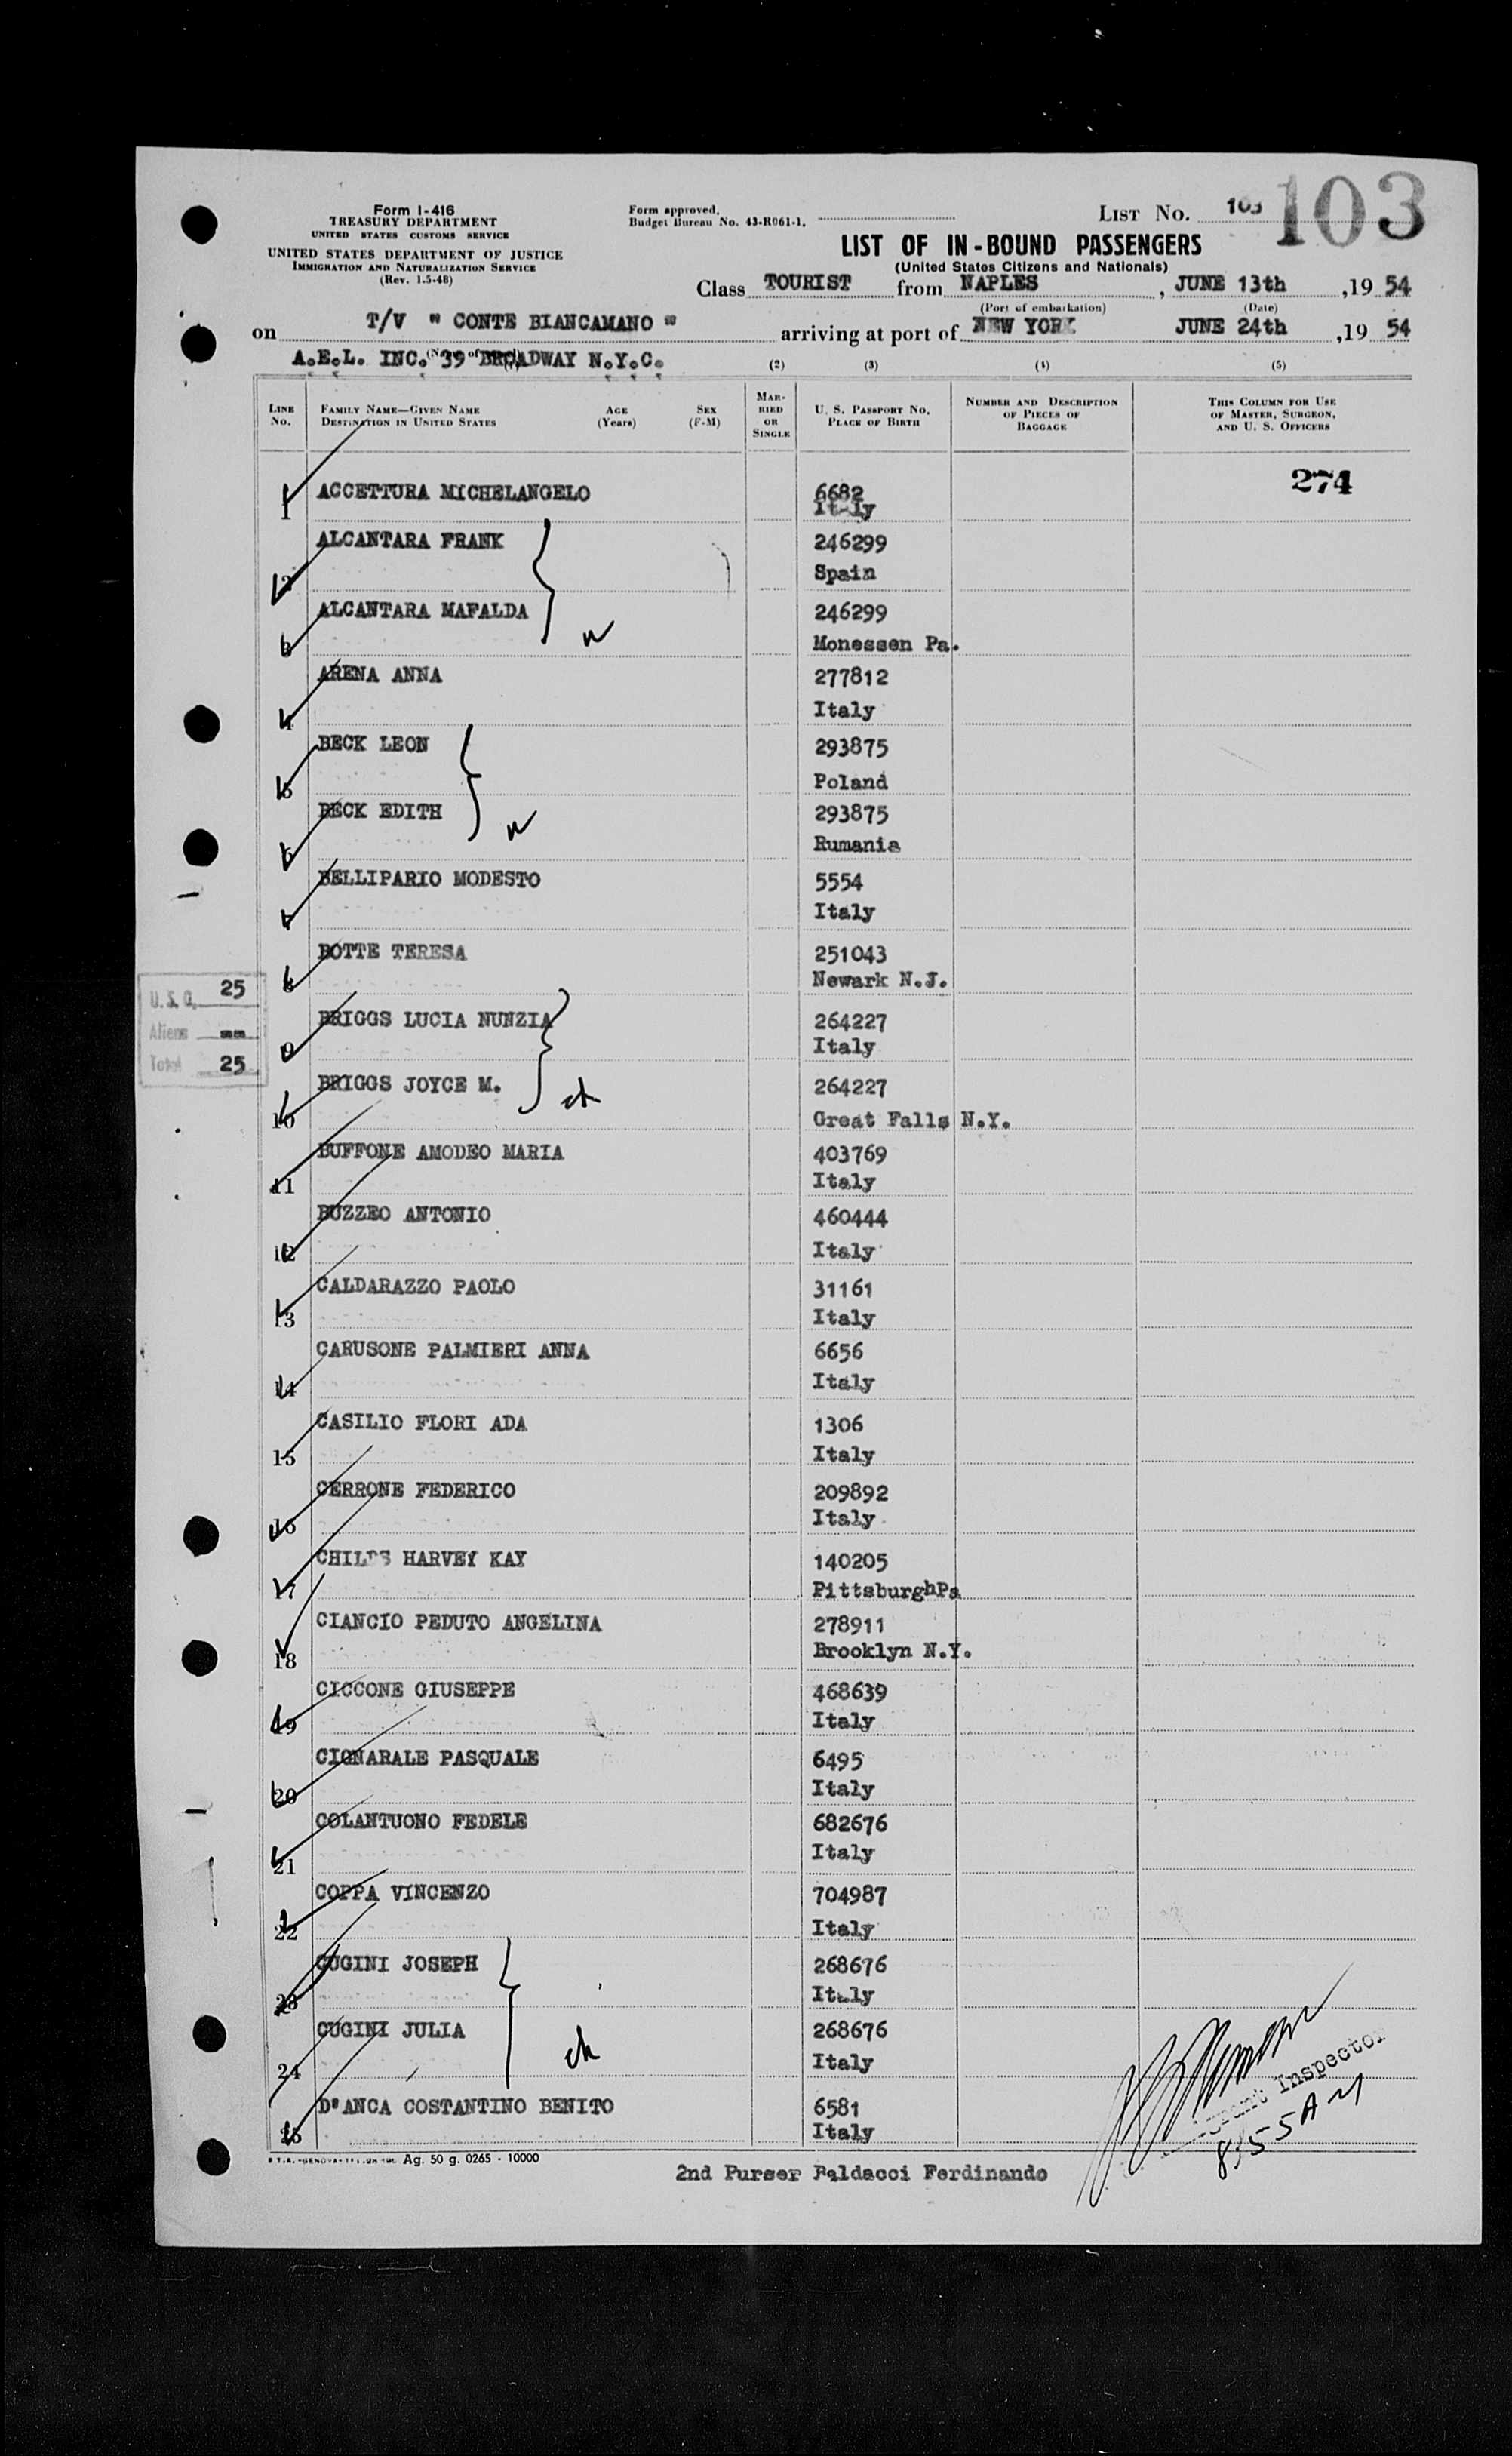 103
Form I-416
TREASURY DEPARTMENT
UNITED STATES CUSTOMS SERVICE
UNITED STATES DEPARTMENT OF JUSTICE
IMMIGRATION AND NATURALIZATION SERVICE
(Rev. 1-5-48)
Form approved.
Budget Bureau No. 43-R061-1.
LIST No. 103
LIST OF IN-BOUND PASSENGERS
(United States Citizens and Nationals)
Class TOURIST from NAPLES, JUNE 13th, 19 54
(Port of embarkation) (Date)
on T/V " CONTE BIANCAMANO " arriving at port of NEW YORK JUNE 24th, 19 54
A.E.L. INC. 39 BROADWAY N.Y.C.
(2) (3) (4) (5)
LINE No. FAMILY NAME—GIVEN NAME DESTINATION IN UNITED STATES AGE (Years) SEX (F-M) MARRIED OR SINGLE U. S. PASSPORT No. PLACE OF BIRTH NUMBER AND DESCRIPTION OF PIECES OF BAGGAGE THIS COLUMN FOR USE OF MASTER, SURGEON, AND U. S. OFFICERS
274
1 ACCETTURA MICHELANGELO 6682
Italy
2 ALCANTARA FRANK 246299
Spain
3 ALCANTARA MAFALDA 246299
Monessen Pa.
4 ARENA ANNA 277812
Italy
5 BECK LEON 293875
Poland
6 BECK EDITH 293875
Rumania
7 BELLIPARIO MODESTO 5554
Italy
8 BOTTE TERESA 251043
Newark N.J.
U.S.C. 25
Aliens --
Total 25
9 BRIGGS LUCIA NUNZIA 264227
Italy
10 BRIGGS JOYCE M. ch 264227
Great Falls N.Y.
11 BUFFONE AMODEO MARIA 403769
Italy
12 BUZZEO ANTONIO 460444
Italy
13 CALDARAZZO PAOLO 31161
Italy
14 CARUSONE PALMIERI ANNA 6656
Italy
15 CASILIO FLORI ADA 1306
Italy
16 CERRONE FEDERICO 209892
Italy
17 CHILDS HARVEY KAY 140205
PittsburghPa
18 CIANCIO PEDUTO ANGELINA 278911
Brooklyn N.Y.
19 CICCONE GIUSEPPE 468639
Italy
20 CIGNARALE PASQUALE 6495
Italy
21 COLANTUONO FEDELE 682676
Italy
22 COPPA VINCENZO 704987
Italy
23 CUGINI JOSEPH 268676
Italy
24 CUGINI JULIA ch 268676
Italy
25 D'ANCA COSTANTINO BENITO 6581
Italy
Immigrant Inspector
8:55 AM
Ag. 50 g. 0265 - 10000
2nd Purser Baldacci Ferdinando